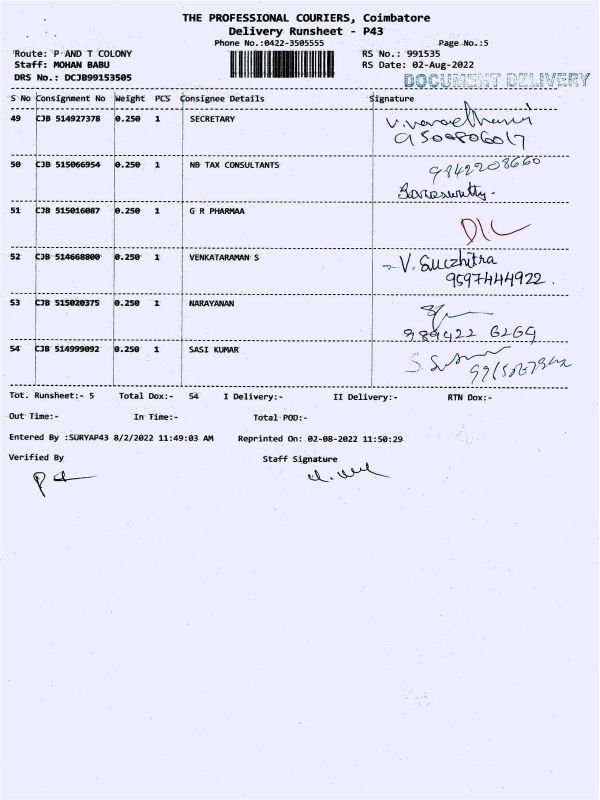 THE PROFESSIONAL COURIERS, Coimbatore
Delivery Runsheet - P43
Phone No.:0422-3505555 Page No.:5
Route: P AND T COLONY RS No.: 991535
Staff: MOHAN BABU RS Date: 02-Aug-2022
DRS No.: DCJB99153505 DOCUMENT DELIVERY
S No Consignment No Weight PCS Consignee Details Signature
49 CJB 514927378 0.250 1 SECRETARY
50 CJB 515066954 0.250 1 NB TAX CONSULTANTS
9842208660
51 CJB 515016087 0.250 1 G R PHARMAA
D/C
52 CJB 514668800 0.250 1 VENKATARAMAN S V. Suczhitra
9597444922.
53 CJB 515020375 0.250 1 NARAYANAN
989422 6269
54 CJB 514999092 0.250 1 SASI KUMAR
Tot. Runsheet:- 5 Total Dox:- 54 I Delivery:- II Delivery:- RTN Dox:-
Out Time:- In Time:- Total POD:-
Entered By :SURYAP43 8/2/2022 11:49:03 AM Reprinted On: 02-08-2022 11:50:29
Verified By Staff Signature